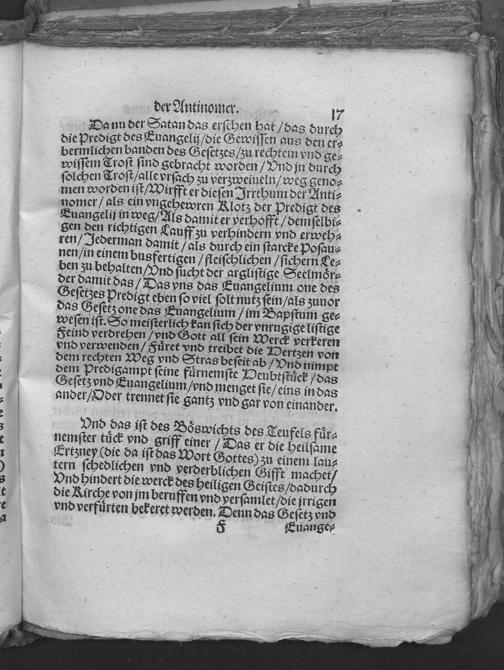 der Antinomer. 17
Da nu der Satan das ersehen hat / das durch
die Predigt des Euangelij / die Gewissen aus den er-
bermlichen banden des Gesetzes / zu rechtem vnd ge-
wissem Trost sind gebracht worden / Vnd in durch
solchen Trost / alle vrsach zu verzweiueln / weg geno-
men worden ist / Wirfft er diesen Irrthum der Anti-
nomer / als ein vngehewren Klotz der Predigt des
Euangelij in weg / Als damit er verhofft / demselbi-
gen den richtigen Lauff zu verhindern vnd erweh-
ren / Jederman damit / als durch ein starcke Posau-
nen / in einem busfertigen / fleischlichen / sichern Le-
ben zu behalten / Vnd sucht der arglistige Seelmör-
der damit das / Das vns das Euangelium one des
Gesetzes Predigt eben so viel solt nutz sein / als zuuor
das Gesetz one das Euangelium / im Bapstum ge-
wesen ist. So meisterlich kan sich der vnrugige listige
Feind verdrehen / vnd Gott all sein Werck verkeren
vnd verwenden / Füret vnd treibt die Hertzen von
dem rechten Weg vnd Stras beseit ab / Vnd nimpt
dem Predigampt seine fürnemste Heubtstück / das
Gesetz vnd Euangelium / vnd menget sie / eins in das
ander / Oder trennet sie gantz vnd gar von einander.
Vnd das ist des Böswichts des Teufels für-
nemster tück vnd griff einer / Das er die heilsame
Ertzney (die da ist das Wort Gottes) zu einem lau-
tern schedlichen vnd verderblichen Gifft machet /
Vnd hindert die werck des heiligen Geistes / dadurch
die Kirche von jm beruffen vnd versamlet / die jrrigen
vnd verfürten bekeret werden. Denn das Gesetz vnd
F Euange-